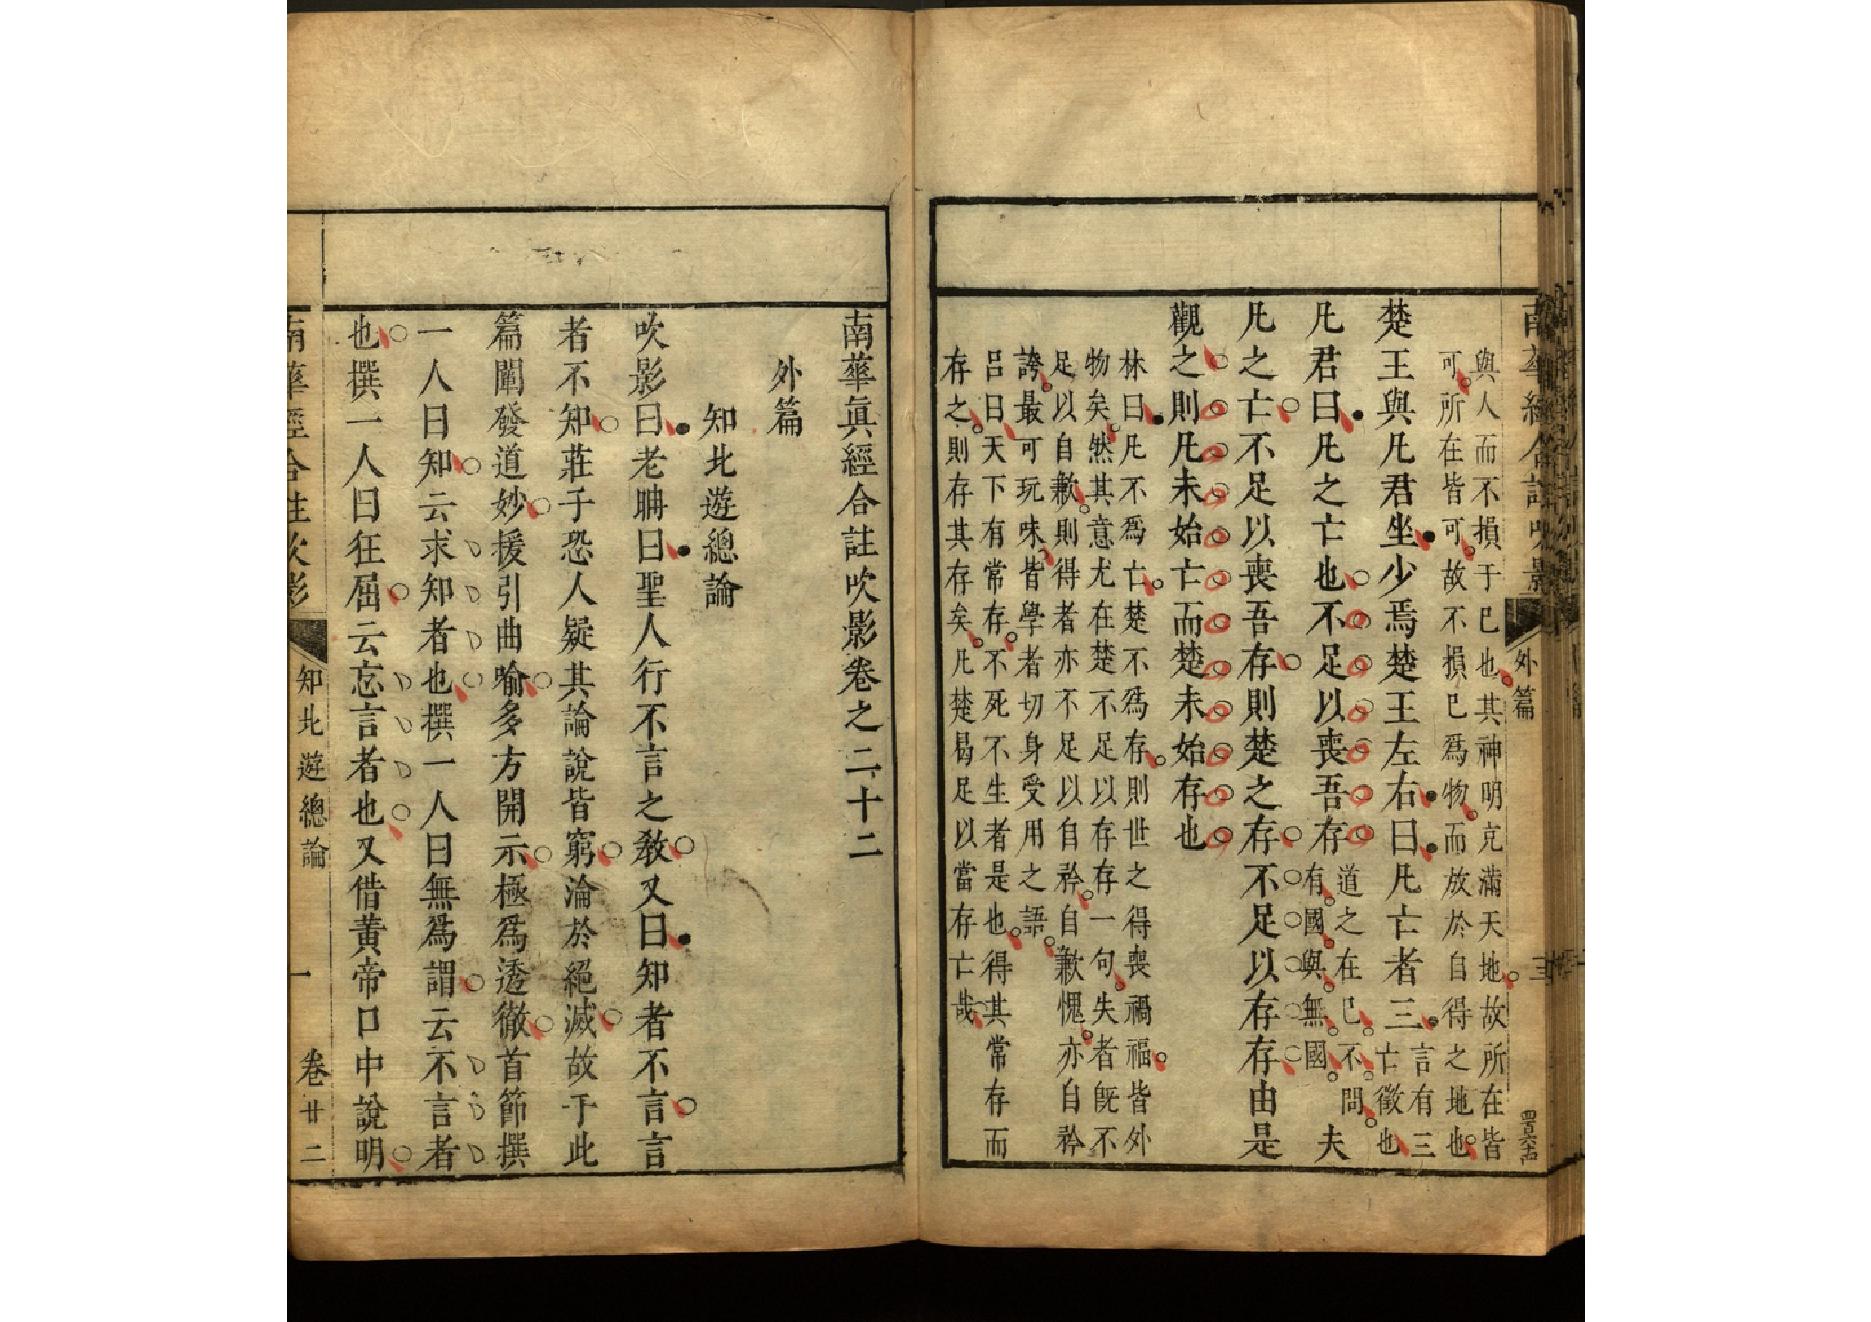 南華經合註吹影
外篇
與人而不損于已也其神明充滿天地故所在皆
可所在皆可故不損已爲物而放於自得之地也
楚王與凡君坐少焉楚王左右曰凡亡者三言有三亡徵也
凡君曰凡之亡也不足以喪吾存道之在已不問有國與無國夫
凡之亡不足以喪吾存則楚之存不足以存存由是
觀之則凡未始亡而楚未始存也
林曰凡不爲亡楚不爲存則世之得喪禍福皆外
物矣然其意尤在楚不足以存存一句失者旣不
足以自歉則得者亦不足以自矜自歉愧亦自矜
誇最可玩味皆學者切身受用之語
呂曰天下有常存不死不生者是也得其常存而
存之則存其存矣凡楚曷足以當存亡哉
南華眞經合註吹影卷之二十二
外篇
知北遊總論
吹影曰老聃曰聖人行不言之敎又曰知者不言言
者不知莊子恐人疑其論說皆窮淪於絕滅故于此
篇闡發道妙援引曲喻多方開示極爲透徹首節撰
一人曰知云求知者也撰一人曰無爲謂云不言者
也撰一人曰狂屈云忘言者也又借黃帝口中說明
南華經合註吹影
知北遊總論
一
卷廿二